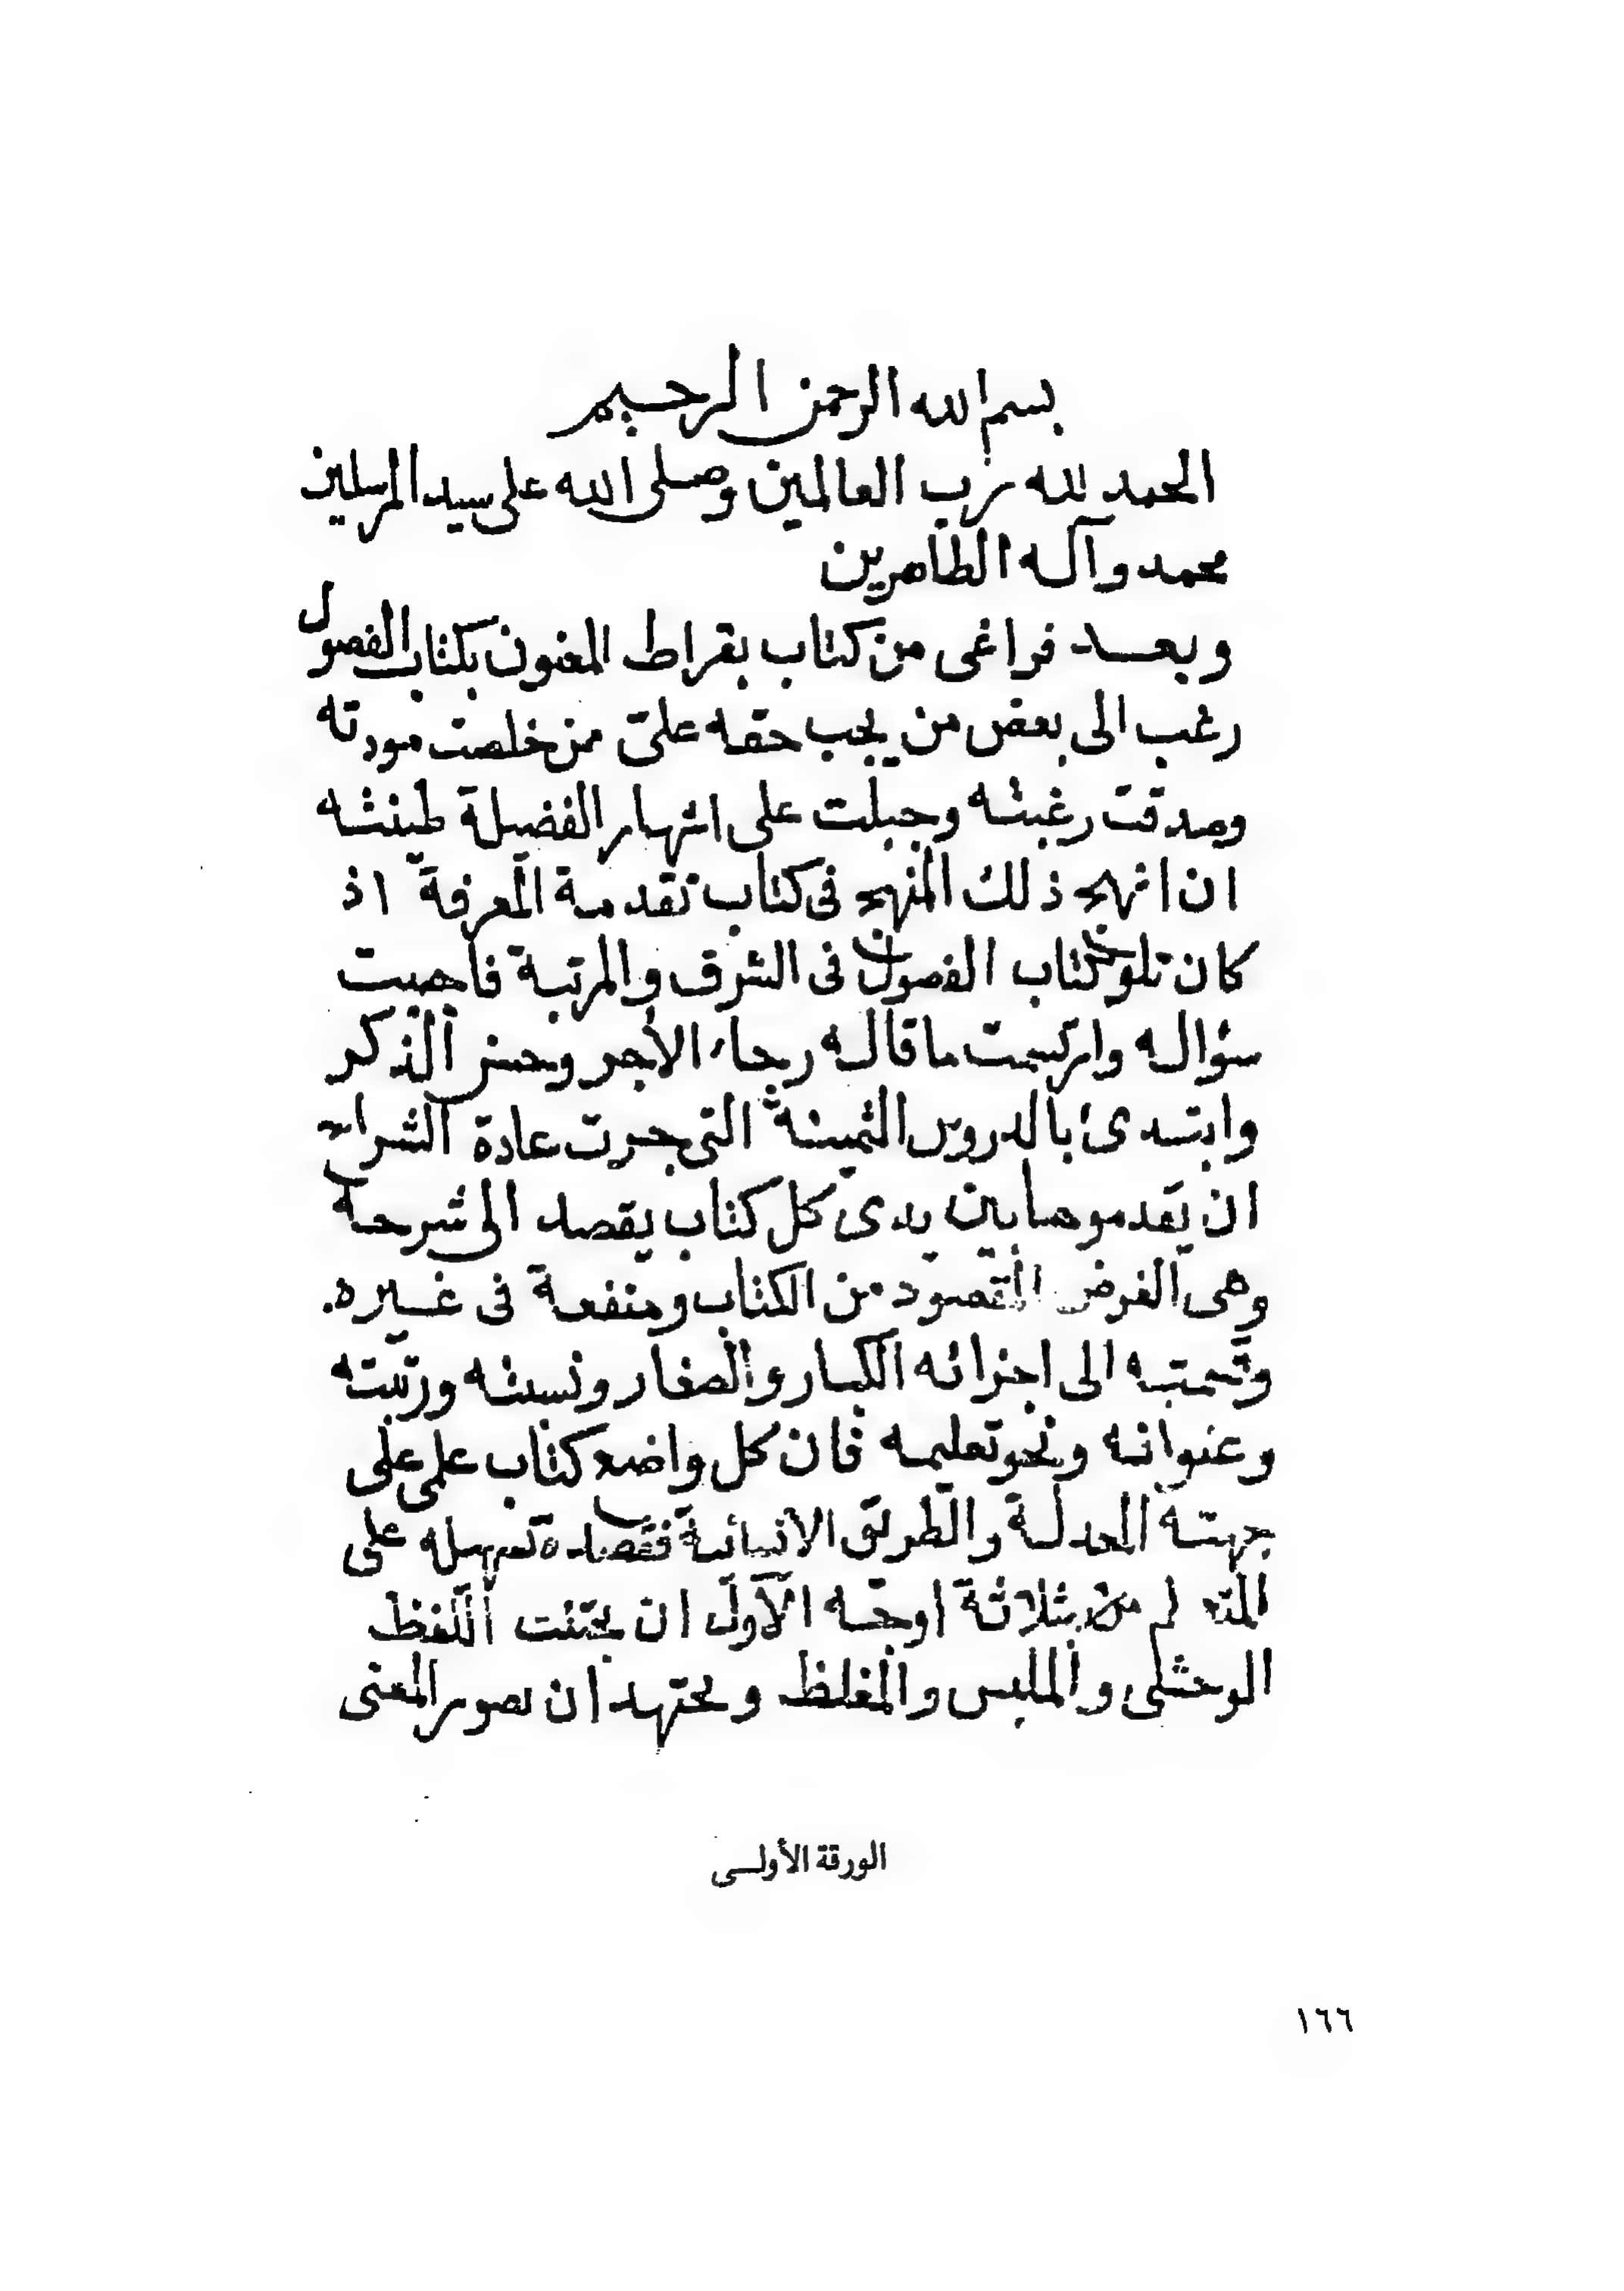 بسم الله الرحمن الرحيم
الحمد لله رب العالمين وصلى الله على سيد المرسلين
محمد وآله الطاهرين
وبعد فراغى من كتاب بقراط المعنون بكتاب الفصول
رغب الى بعض من يجب حقه على ممن خلصت مودته
وصدقت رغبته وجبلت على اشهار الفضيلة طينته
ان انهج ذلك المنهج فى كتاب تقدمة المعرفة اذ
كان تلو كتاب الفصول فى الشرف والمرتبة فاجبت
سؤاله وارتسمت ما قاله رجاء الأجر وحسن الذكر
وابتدئ بالدروس الثمينة التى جرت عادة الشراح
ان يقدموها بين يدى كل كتاب يقصد الى شرحه
وهى الغرض المقصود من الكتاب ومنفعة فى غيره.
وقسمته الى اجزائه الكبار والصغار ونسبته ورتبته
وعنوانه ونحو تعليمه فان كل واضع كتاب علمى على
جهته والطريق فقصده تسهيله على
ثلاثة اوجه الأول ان يجتنب اللفظ
الوحشى والملبس والمغلظ ويجتهد ان يصور المعنى
الورقة الأولى
١٦٦